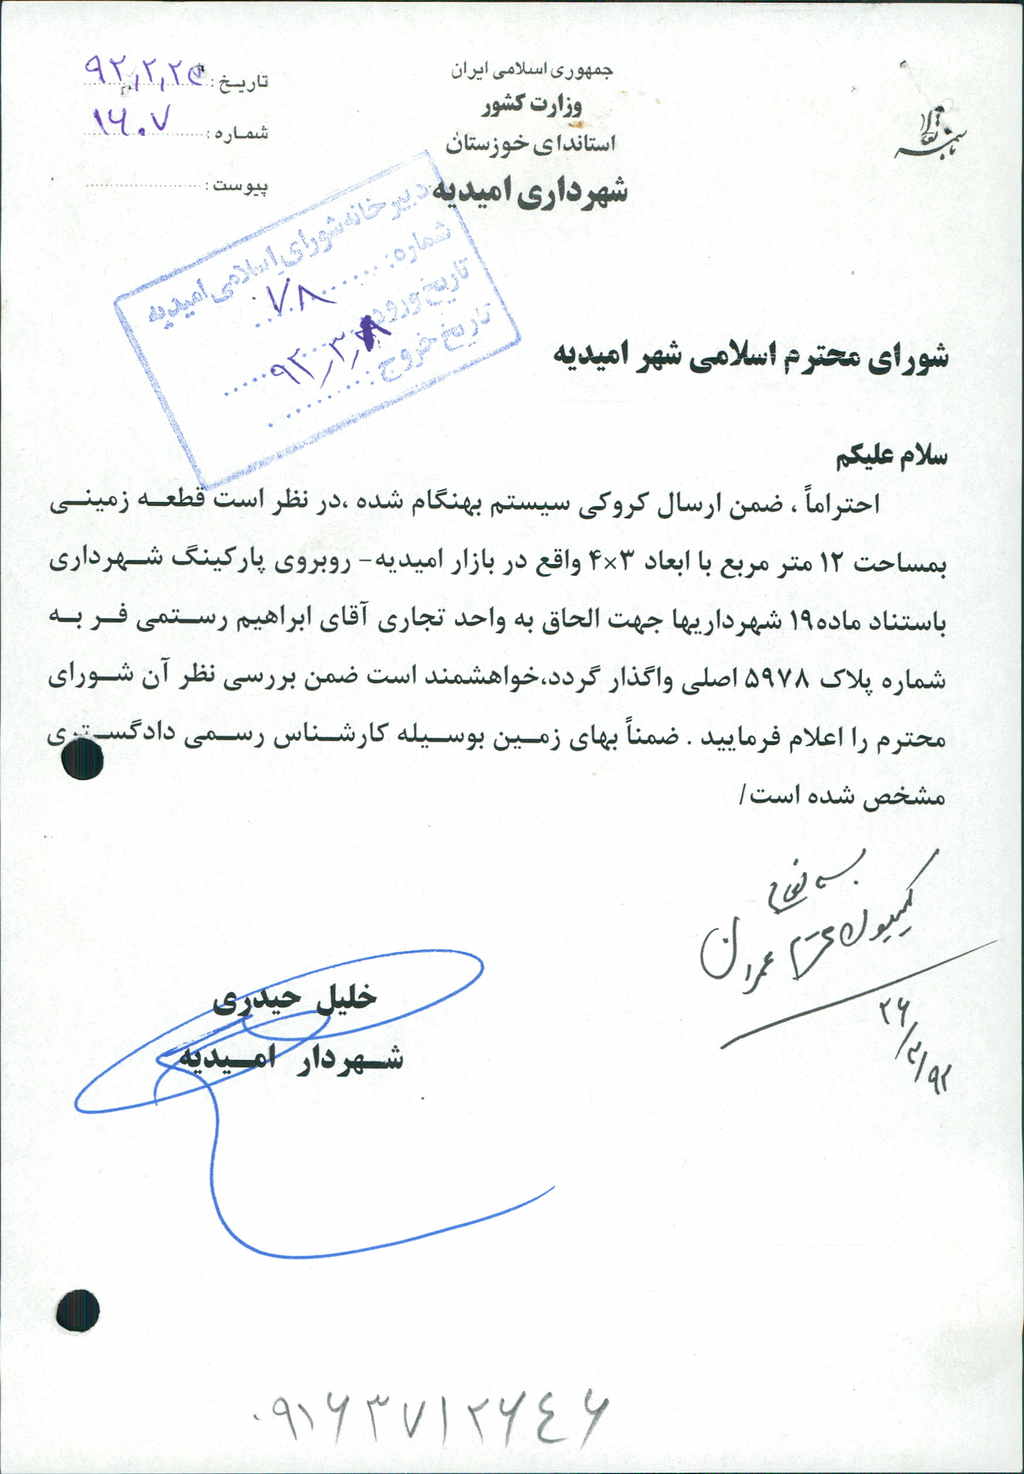 باسمه تعالی
جمهوری اسلامی ایران
وزارت کشور
استانداری خوزستان
شهرداری امیدیه
تاریخ: ۹۲,۲,۲۵
شماره: ۱۶۰۷
پیوست:
دبیرخانه شورای اسلامی امیدیه
شماره: ۷۸
تاریخ ورود:
تاریخ خروج:
شورای محترم اسلامی شهر امیدیه
سلام علیکم
احتراماً ، ضمن ارسال کروکی سیستم بهنگام شده ،در نظر است قطعه زمینی
بمساحت ۱۲ متر مربع با ابعاد ۳×۴ واقع در بازار امیدیه- روبروی پارکینگ شهرداری
باستناد ماده۱۹ شهرداریها جهت الحاق به واحد تجاری آقای ابراهیم رستمی فر به
شماره پلاک ۵۹۷۸ اصلی واگذار گردد،خواهشمند است ضمن بررسی نظر آن شورای
محترم را اعلام فرمایید . ضمناً بهای زمین بوسیله کارشناس رسمی دادگستری
مشخص شده است/
بسمه تعالی
کمیسیون محترم عمران
۹۲/۲/۲۶
خلیل حیدری
شهردار امیدیه
۰۹۱۶۳۷۱۲۶۴۶